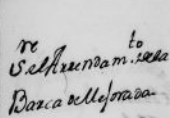 re
Sel Arrendam.to dela
Barca de Mejorada